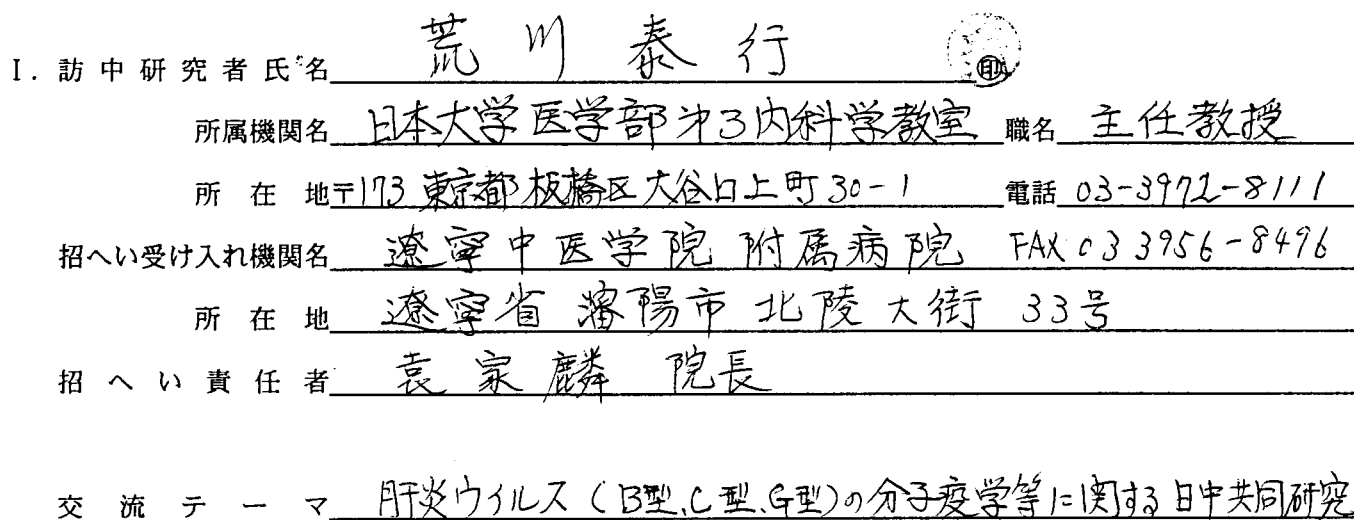 I. 訪中研究者氏名 荒川泰行 印
所属機関名 日本大学医学部第3内科学教室 職名 主任教授
所在地 〒173 東京都板橋区大谷口上町30-1 電話 03-3972-8111
招へい受け入れ機関名 遼寧中医学院附属病院 FAX 03 3956-8496
所在地 遼寧省瀋陽市北陵大街33号
招へい責任者 袁家麟 院長
交流テーマ 肝炎ウイルス(B型、C型、G型)の分子疫学等に関する日中共同研究